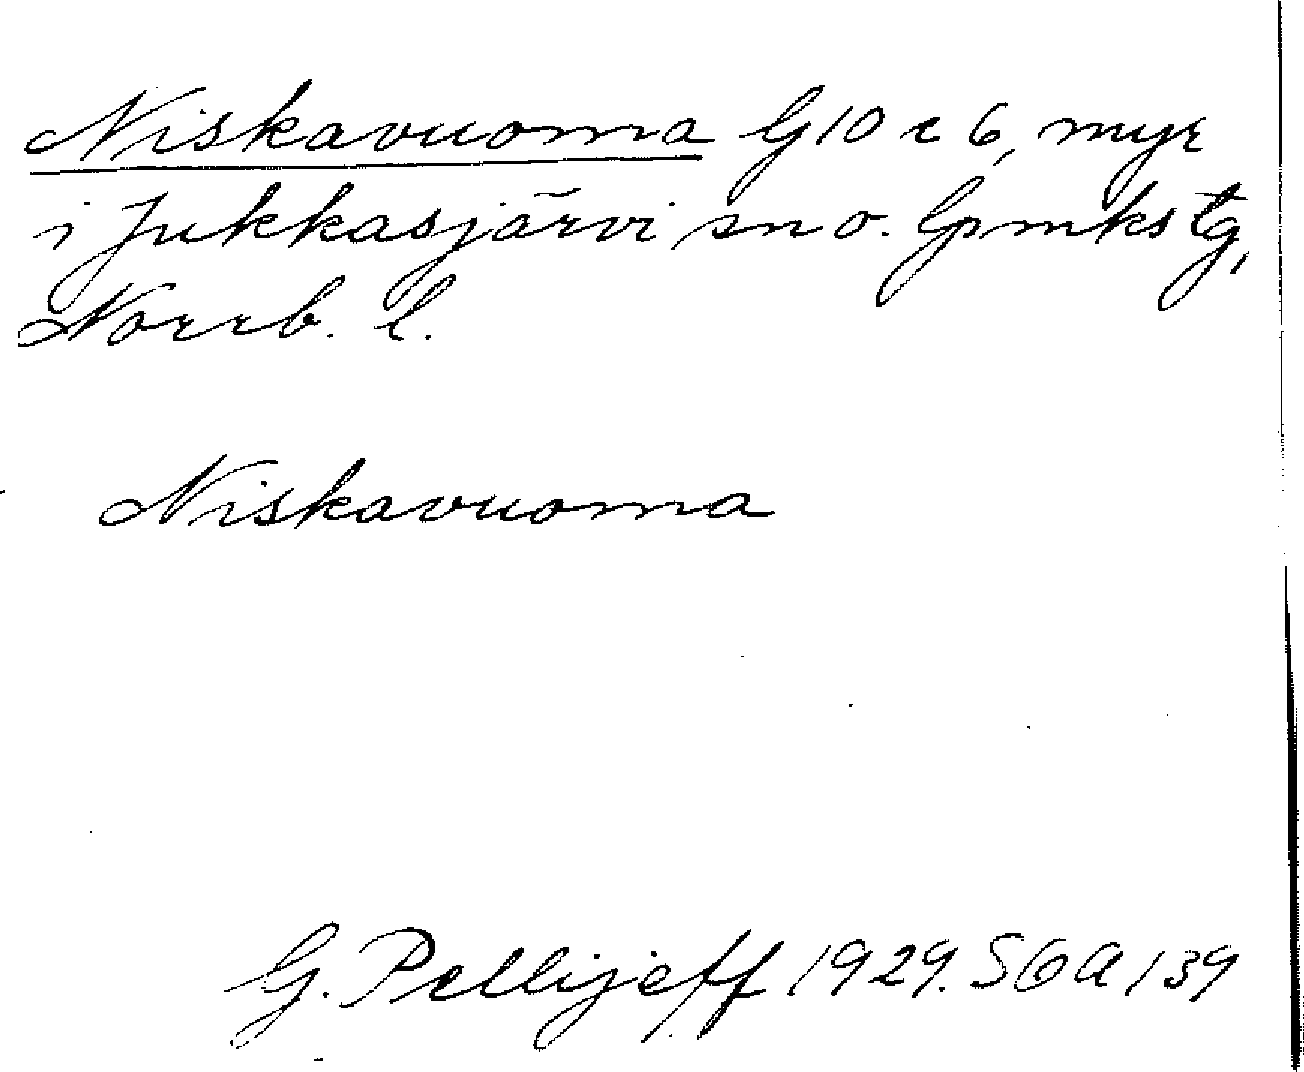 Niskavuoma G10 c 6, myr
i Jukkasjärvi sn o. lpmkstg,
Norrb. l.
Niskavuoma
G. Pellijeff 1929. SOA 139